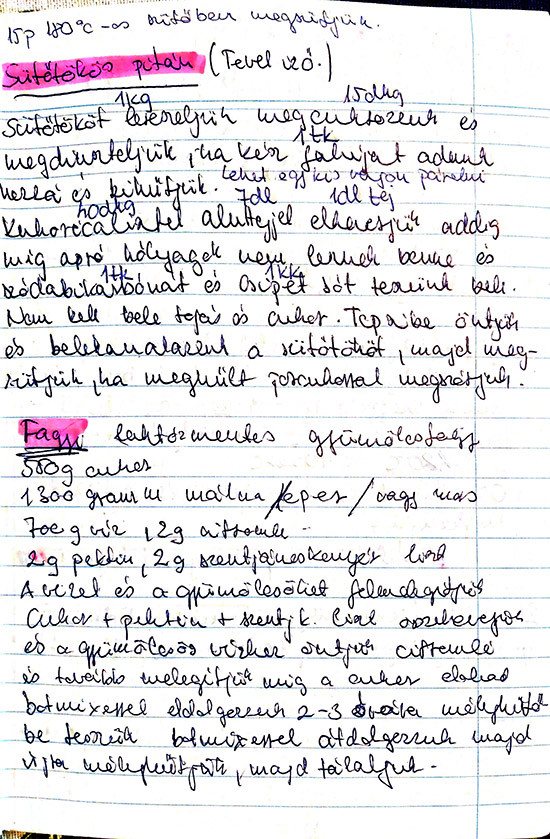 15p 180°C-os sütőben megsütjük.
Sütőtökös pitán (Tevel izó.)
1kg 15dkg
Sütőtököt lereszeljük megcukrozzuk és
1tk
megdinszteljük, ha kész fahéjat adunk
hozzá és kihűtjük. Lehet egy kis vajon párolni
40dkg 7dl 1dl tej
Kukoricalisztet aluttejjel elkeverjük addig
míg apró hólyagok nem lesznek benne és
1tk 1kk
szódabikarbónát és csipet sót teszünk bele.
Nem kell bele tojás és cukor. Tepsibe öntjük
és belekanalazzuk a sütőtököt, majd meg-
sütjük, ha meghűlt porcukorral megszórjuk.
Fagyi laktózmentes gyümölcsfagyi
550g cukor
1300 gramm málna /eper/ vagy más
700g víz, 2g citromlé -
2g pektin, 2g szentjánoskenyér liszt
A vizet és a gyümölcsöket felmelegítjük
Cukor + pektin + szentjk. liszt összekeverjük
és a gyümölcsös vízhez öntjük citromlé
és tovább melegítjük míg a cukor elolvad
botmixerrel eldolgozzuk 2-3 órára mélyhűtő
be tesszük botmixerrel átdolgozzuk majd
újra mélyhűtjük, majd tálaljuk -